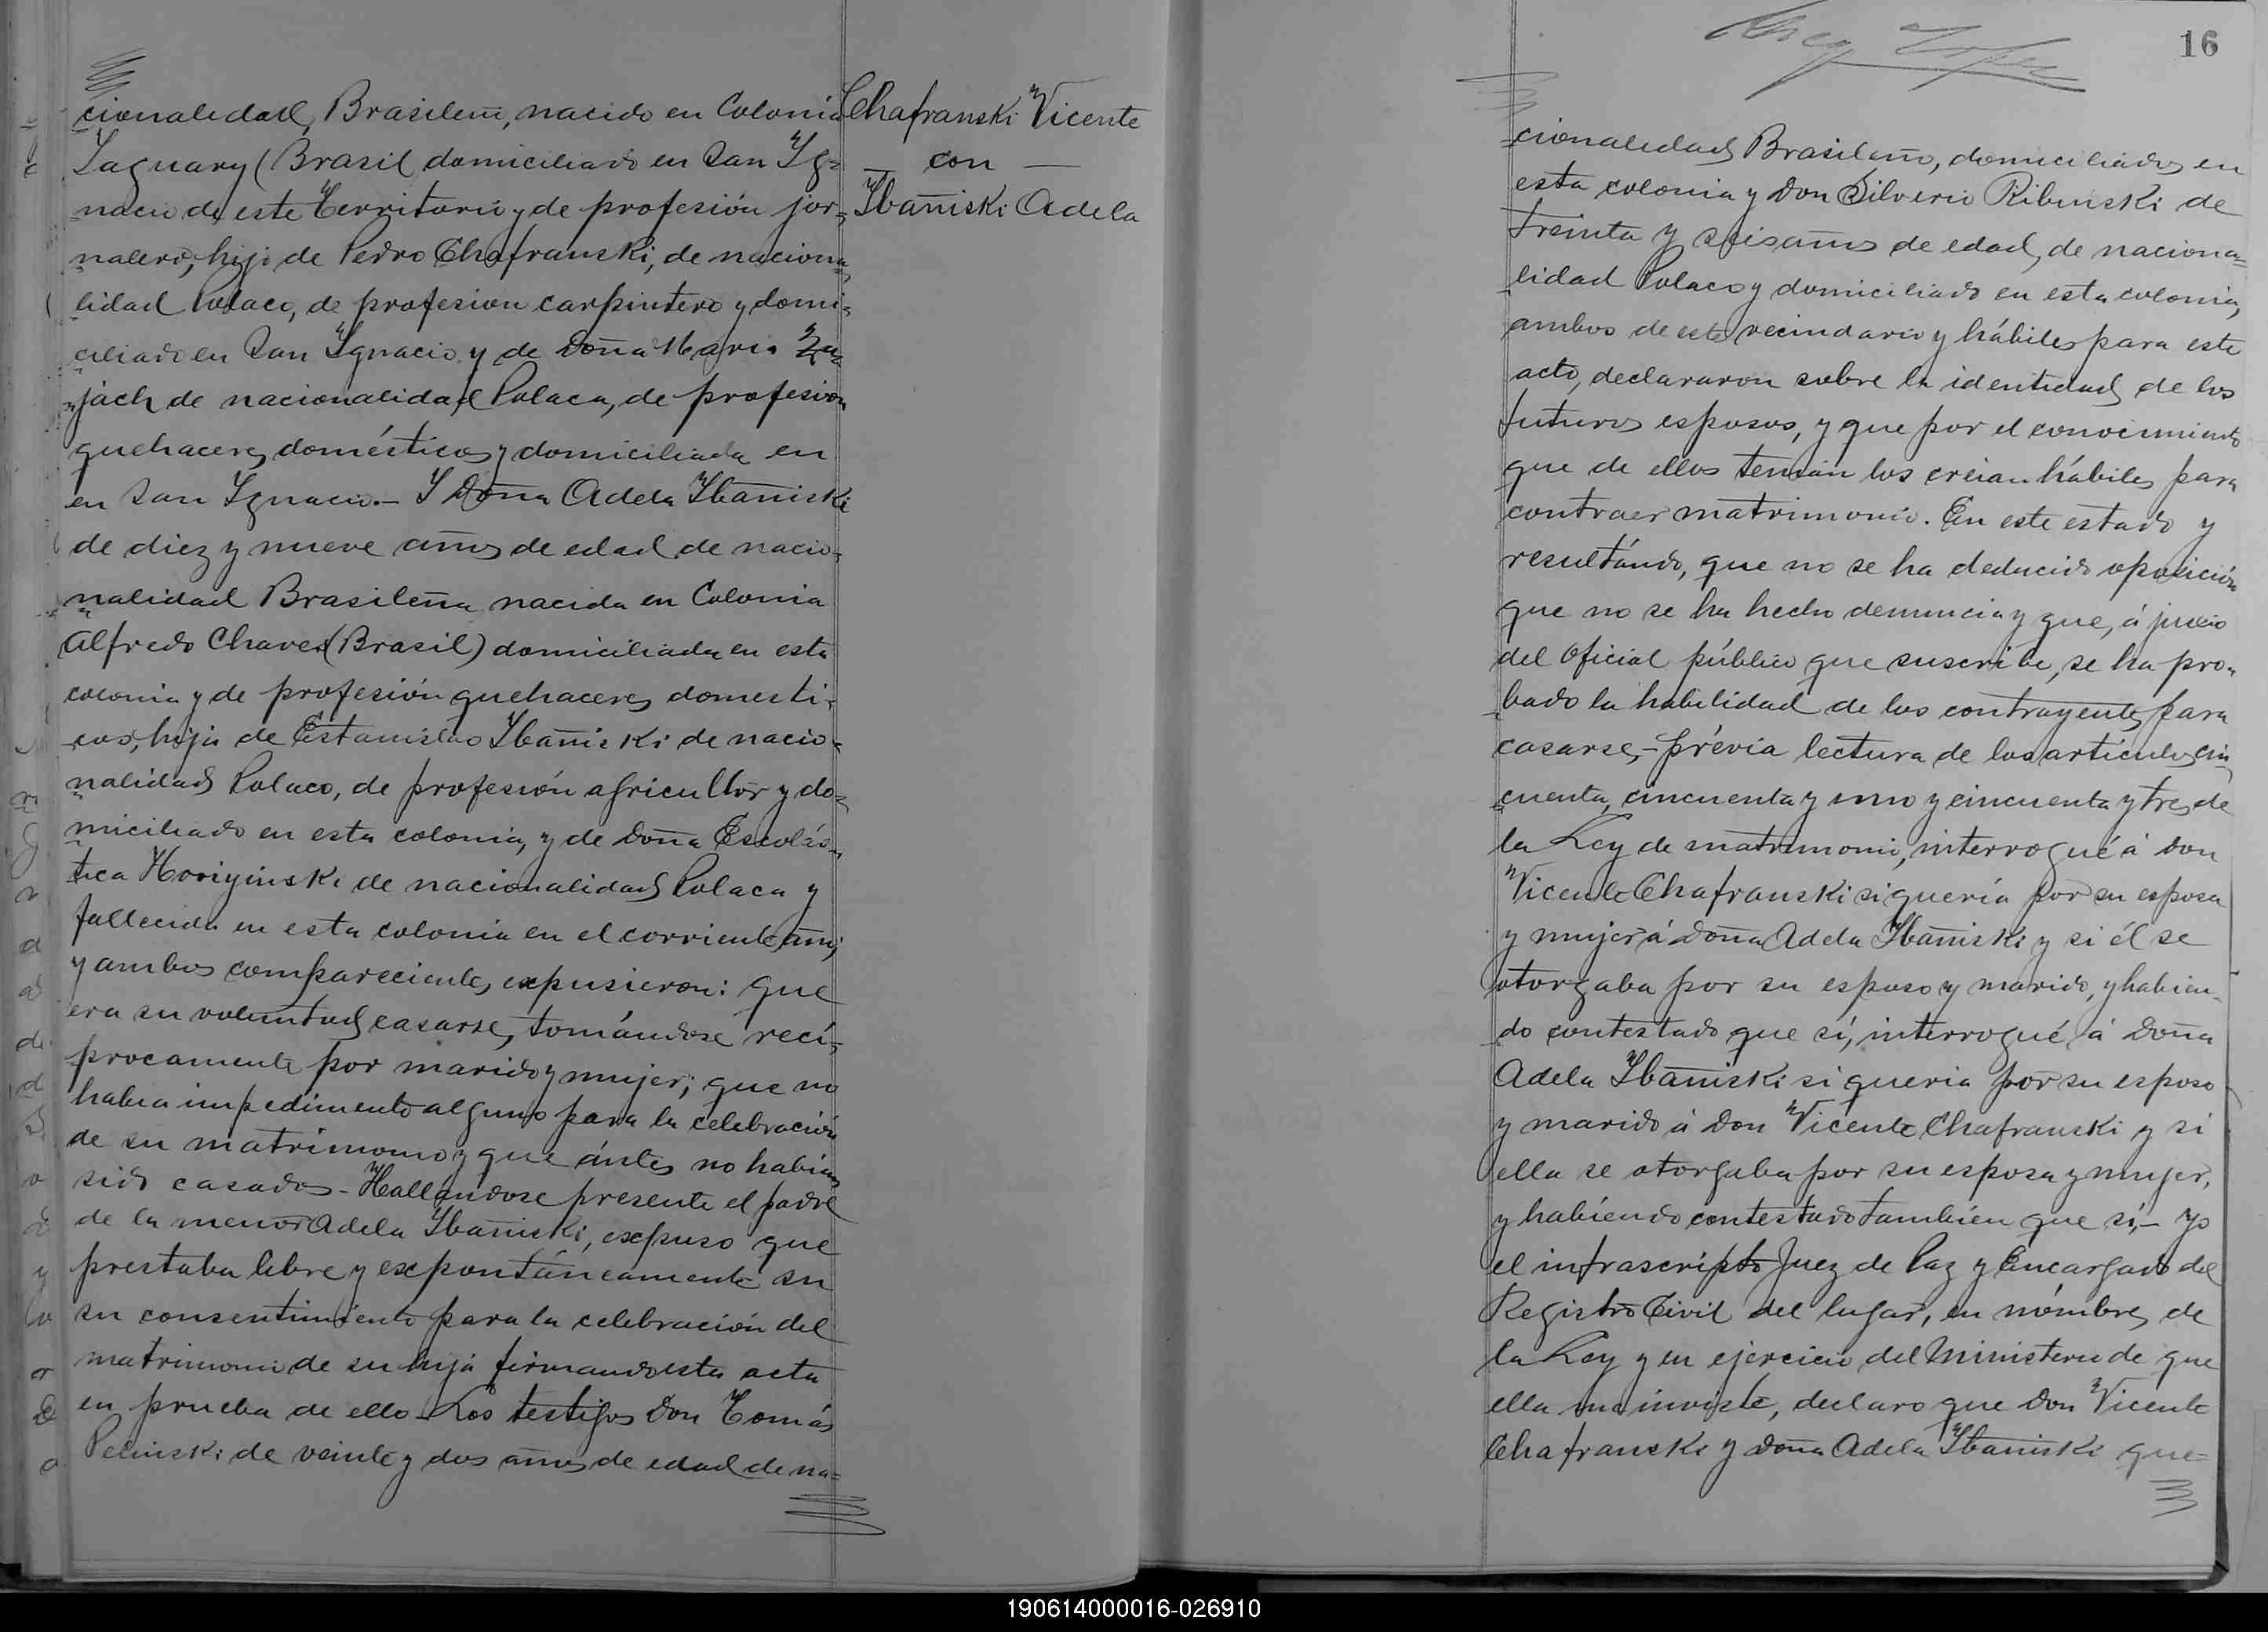 cionalidad, Brasilem, nacido en Colonia
Jaguary (Brasil domiciliado en San Yg-
nacio de este Territorio y de profesión jor-
nalero, hijo de Pedro Chafranski, de naciona-
lidad Polaco, de profesion carpintero y domi-
ciliado en San Ygnacio y de Doña Maria
jach de nacionalidad Polaca, de profesion
quehaceres domésticos y domiciliada en
en San Ygnacio.- Y Doña Adela Ybañiski
de diez y nueve años de edad de nacio-
nalidad Brasileña nacida en Colonia
Alfredo Chaves (Brasil) domiciliada en esta
colonia y de profesión quehaceres domesti-
cos, hija de Estanislao Ybañiski de nacio-
nalidad Polaco, de profesión agricultor y do-
miciliado en esta colonia, y de Doña Escolás-
tica Horiyinski de nacionalidad Polaca y
fallecida en esta colonia en el corriente año;
y ambos comparecientes expusieron: que
era su voluntad casarse, tomándose recí-
procamente por marido y mujer; que no
habia impedimento alguno para la celebración
de su matrimonio y que ántes no habían
sido casados - Hallandose presente el padre
de la menor Adela Ybañiski, expuso que
prestaba libre y expontáneamente su
su consentimiento para la celebración del
matrimonio de su hija firmando esta acta
en prueba de ello - Los testigos Don Tomás
Pelinski de veinte y dos años de edad de na-
Chafranski Vicente
- con -
Ybañiski Adela
16
cionalidad Brasileño, domiciliado en
esta colonia y Don Silverio Ribinski de
treinta y seis años de edad, de naciona-
lidad Polaco y domiciliado en esta colonia,
ambos de este vecindario y hábiles para este
acto, declararon sobre la identidad de los
futuros esposos, y que por el conocimiento
que de ellos tenían los creian hábiles para
contraer matrimonio. En este estado y
resultándo, que no se ha deducido oposición
que no se ha hecho denuncia y que, á juicio
del oficial público que suscribe, se ha pro-
bado la habilidad de los contrayentes para
casarse, - prévia lectura de los artículos cin-
cuenta, cincuenta y uno y cincuenta y tres de
la Ley de matrimonio, interrogué á Don
Vicente Chafranski si quería por su esposa
y mujer á Doña Adela Ybañiski y si él se
otorgaba por su esposo y marido, y habien-
do contestado que sí, interrogué á Doña
Adela Ybañiski si queria por su esposo
y marido á Don Vicente Chafranski y si
ella se otorgaba por su esposa y mujer,
y habiendo contestado tambien que sí, - yo
el infrascripto Juez de Paz y Encargado del
Registro Civil del lugar, en nómbre de
la Ley y en ejercicio del Ministerio de que
ella me inviste, declaro que Don Vicente
Chafranski y Doña Adela Ybañiski que-
190614000016-026910